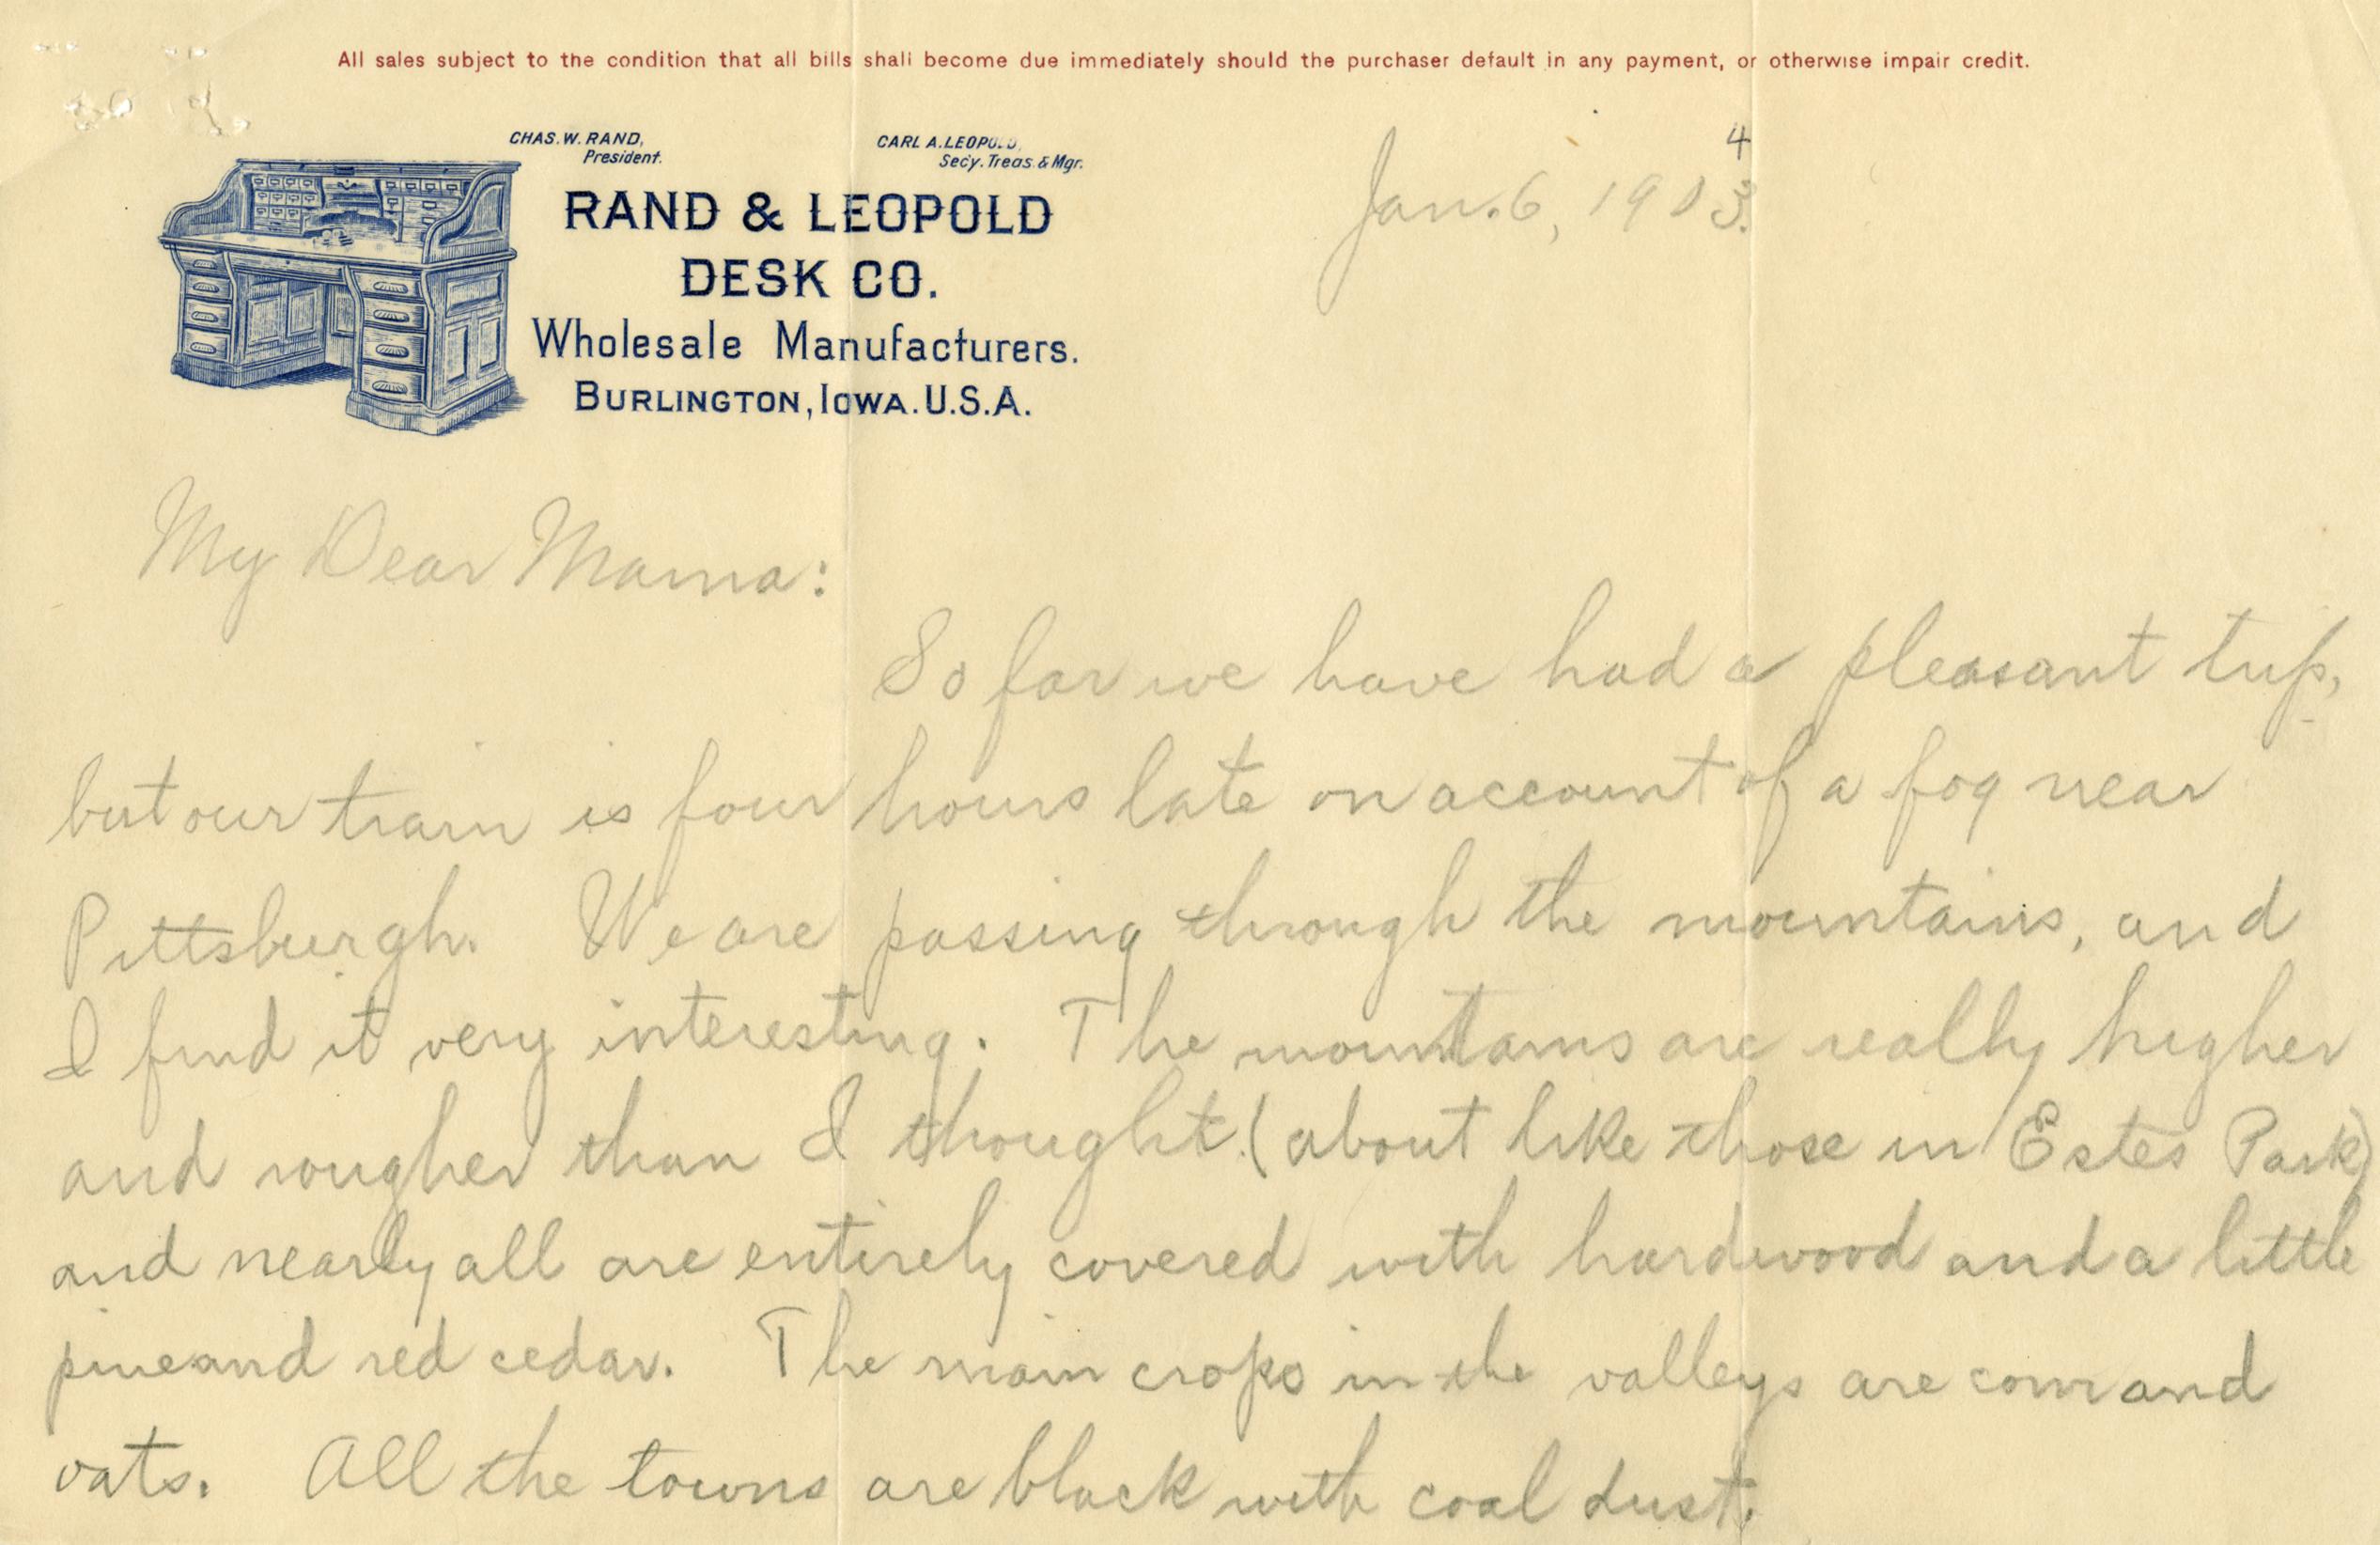 All sales subject to the condition that all bills shall become due immediately should the purchaser default in any payment, or otherwise impair credit.
CHAS. W. RAND,
President.
CARL A. LEOPOLD,
Sec'y. Treas. & Mgr.
RAND & LEOPOLD
DESK CO.
Wholesale Manufacturers.
BURLINGTON, IOWA. U.S.A.
4
Jan. 6, 1903.
My Dear Mama:
So far we have had a pleasant trip,
but our train is four hours late on account of a fog near
Pittsburgh. We are passing through the mountains, and
I find it very interesting. The mountains are really higher
and rougher than I thought. (about like those in Estes Park)
and nearly all are entirely covered with hardwood and a little
pine and red cedar. The main crops in the valleys are corn and
oats. All the towns are black with coal dust.